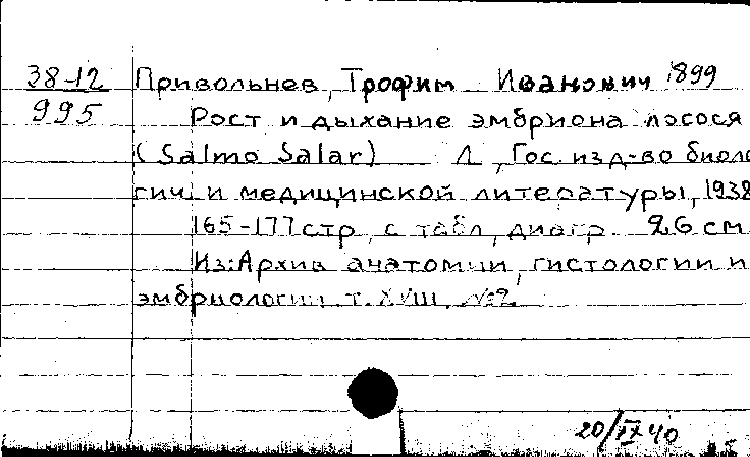 38-12
995
Привольнев, Трофим Иванович 1899
Рост и дыхание эмбриона лосося
(Salmo Salar) Л., Гос. изд-во биоло
гич. и медицинской литературы, 1938
165-177 стр. с табл., диагр. 26 см
Из: Архив анатомии, гистологии и
эмбриологии т. XVIII, №2
20/IX 40